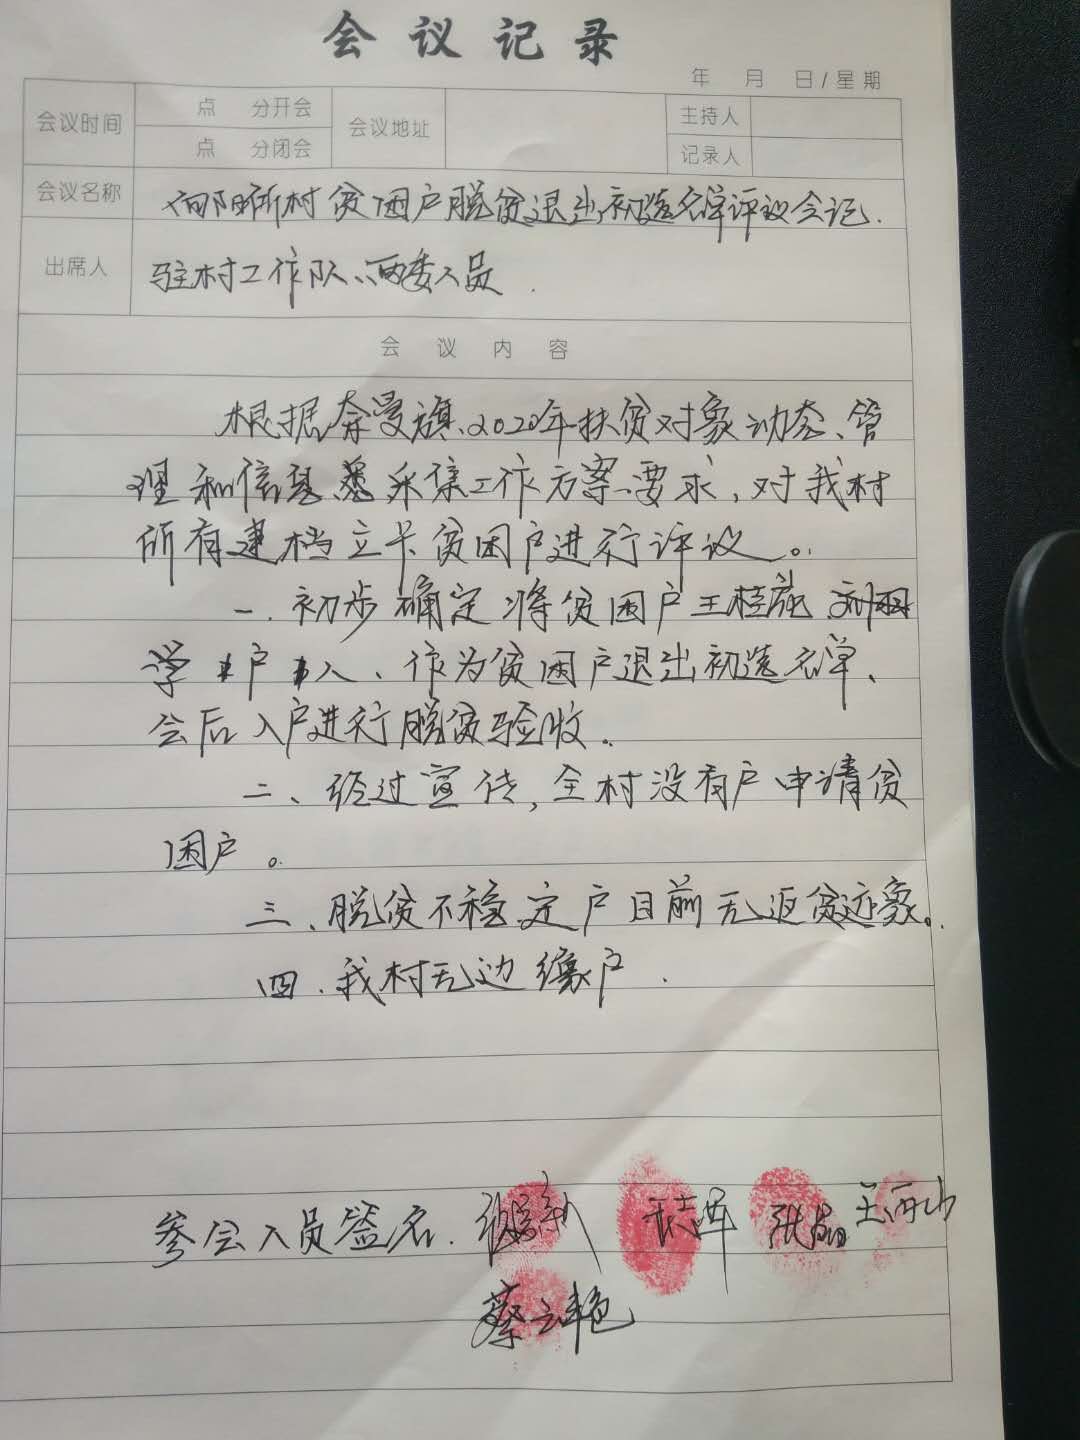 会议记录
年 月 日/星期
会议时间 点 分开会 会议地址 主持人
点 分闭会 记录人
会议名称 向阳所村贫困户脱贫退出初选名单评议会记.
出席人 驻村工作队、两委人员.
会议内容
根据奈曼旗、2020年扶贫对象动态、管
理和信息采集工作方案要求,对我村
所有建档立卡贫困户进行评议。
一.初步确定将贫困户王桂
学 户 人、作为贫困户退出初选名单、
会后入户进行脱贫验收。
二、经过宣传,全村没有户申请贫
困户。
三、脱贫不稳定户目前无返贫迹象。
四.我村无边缘户.
参会人员签名. 张磊
蔡云艳